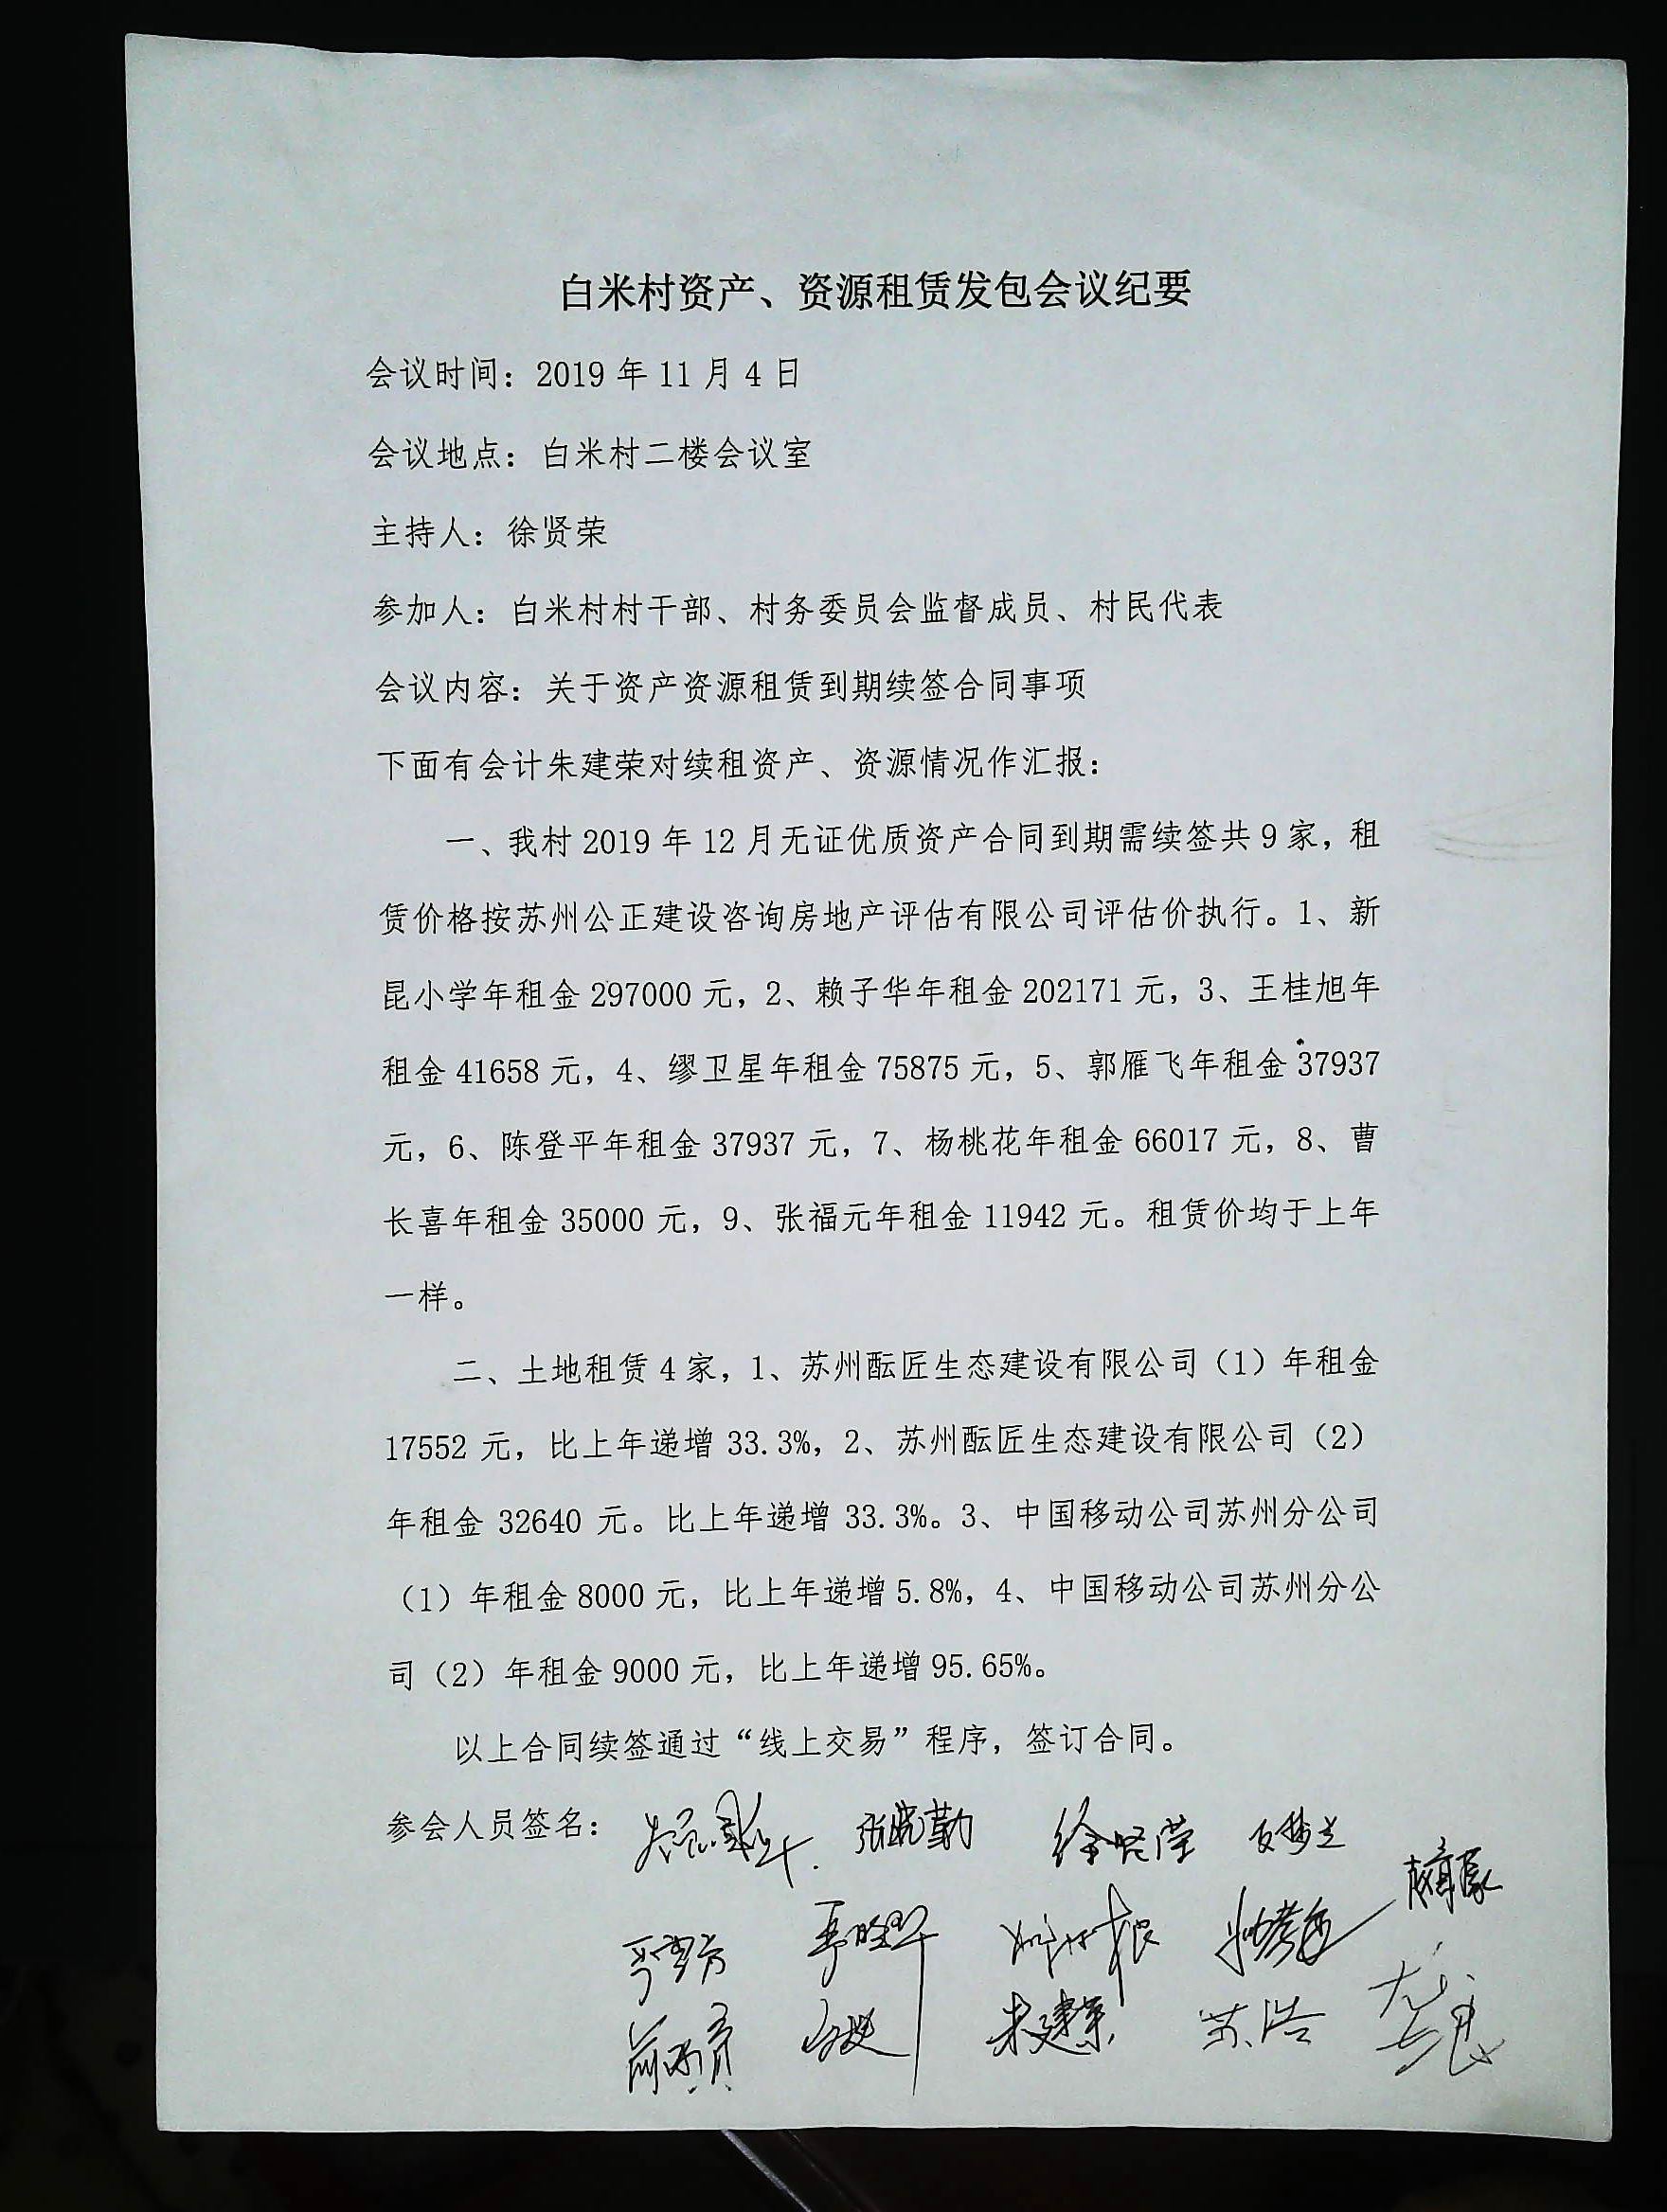 白米村资产、资源租赁发包会议纪要
会议时间：2019 年 11 月 4 日
会议地点：白米村二楼会议室
主持人：徐贤荣
参加人：白米村村干部、村务委员会监督成员、村民代表
会议内容：关于资产资源租赁到期续签合同事项
下面有会计朱建荣对续租资产、资源情况作汇报：
一、我村 2019 年 12 月无证优质资产合同到期需续签共 9 家，租
赁价格按苏州公正建设咨询房地产评估有限公司评估价执行。1、新
昆小学年租金 297000 元，2、赖子华年租金 202171 元，3、王桂旭年
租金 41658 元，4、缪卫星年租金 75875 元，5、郭雁飞年租金 37937
元，6、陈登平年租金 37937 元，7、杨桃花年租金 66017 元，8、曹
长喜年租金 35000 元，9、张福元年租金 11942 元。租赁价均于上年
一样。
二、土地租赁 4 家，1、苏州酝匠生态建设有限公司（1）年租金
17552 元，比上年递增 33.3%，2、苏州酝匠生态建设有限公司（2）
年租金 32640 元。比上年递增 33.3%。3、中国移动公司苏州分公司
（1）年租金 8000 元，比上年递增 5.8%，4、中国移动公司苏州分公
司（2）年租金 9000 元，比上年递增 95.65%。
以上合同续签通过“线上交易”程序，签订合同。
参会人员签名：
朱建荣 苏浩